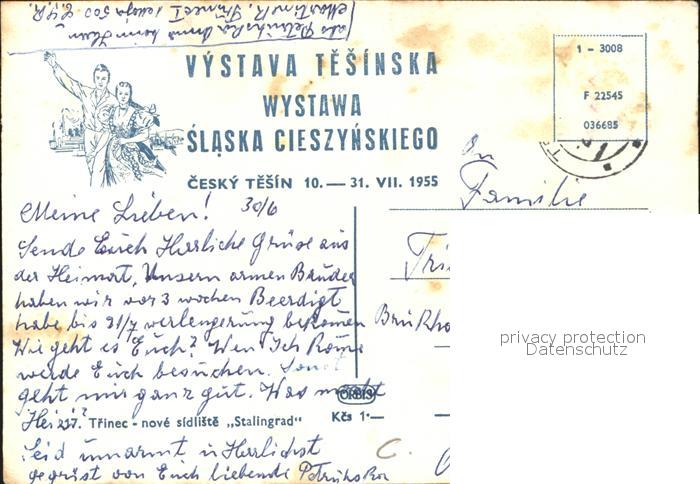 VÝSTAVA TĚŠÍNSKA
WYSTAWA
ŚLĄSKA CIESZYŃSKIEGO
ČESKÝ TĚŠÍN 10. — 31. VII. 1955
1 - 3008
F 22545
036685
An
Familie
Meine Lieben! 30/6
Sende Euch Herrliche Grüse aus
der Heimort, Unsern armen Bruder
haben wir vor 3 wochen Beerdigt
habe bis 31/7 verlengerung bekomen
Wie geht es Euch? Wen Ich Kome
werde Euch besuchen. Sonst
geht mir ganz gut. Was macht
ORBIS
237. Třinec - nové sídliště „Stalingrad" Kčs 1·—
Seid umarmt u Herrlichst
gegrüst von Euch liebende
privacy protection
Datenschutz